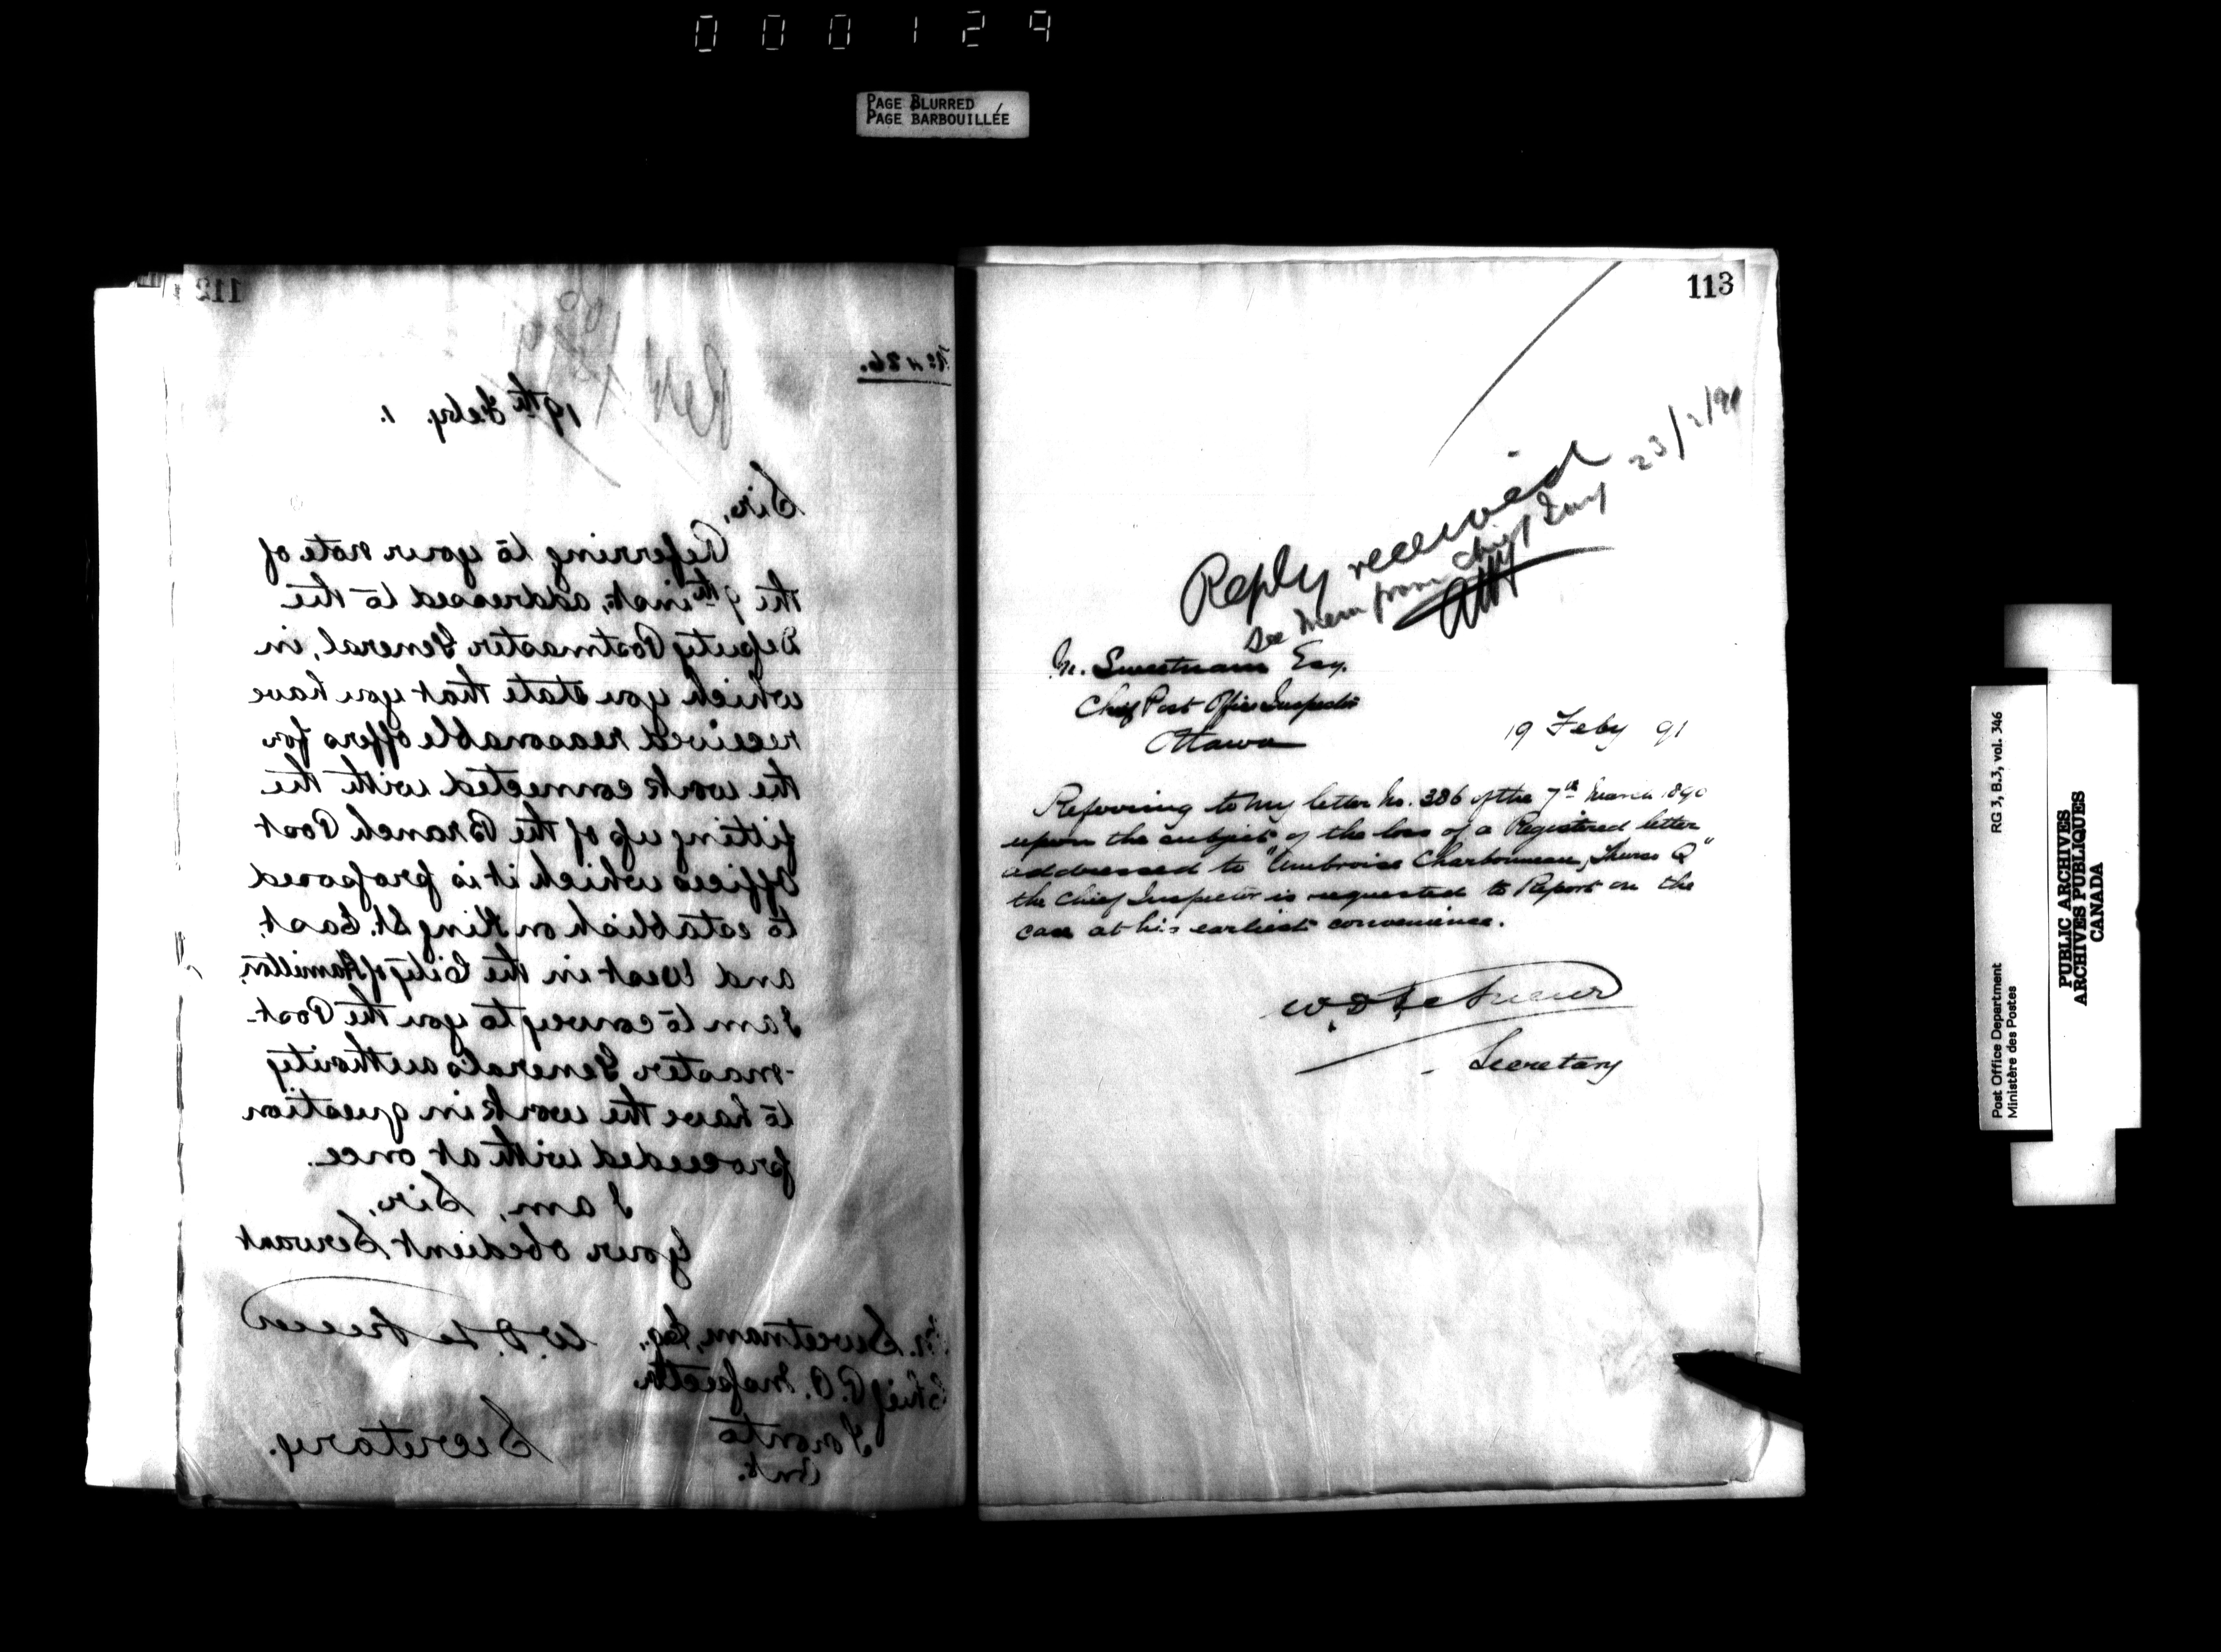 000129
PAGE BLURRED
PAGE BARBOUILLÉE
112
No 426.
19th Feby. 1.
Sir,
Referring to your note of
the 9th inst, addressed to the
Deputy Postmaster General, in
which you state that you have
received reasonable offers for
the work connected with the
fitting up of the Branch Post
Offices which it is proposed
to establish on King St. East,
and West in the City of Hamilton,
I am to convey to you the Post-
-master General's authority
to have the work in question
proceeded with at once.
I am, Sir,
Your obedient Servant
W. D. Le Sueur
Secretary.
M. Sweetnam, Esq.
Chief P.O. Inspector
Toronto
Ont.
113
Reply received
See Mem from Chief Insp
23/2/91
M. Sweetnam Esq.
Chief Post Office Inspector
Ottawa
19 Feby 91
Referring to my letter No. 386 of the 7th March 1890
upon the subject of the loss of a Registered letter
addressed to "Ambroise Charbonneau, Thurso Q"
the Chief Inspector is requested to Report on the
case at his earliest convenience.
W. D. Le Sueur
Secretary
Post Office Department
Ministère des Postes
RG 3, B.3, vol. 346
PUBLIC ARCHIVES
ARCHIVES PUBLIQUES
CANADA